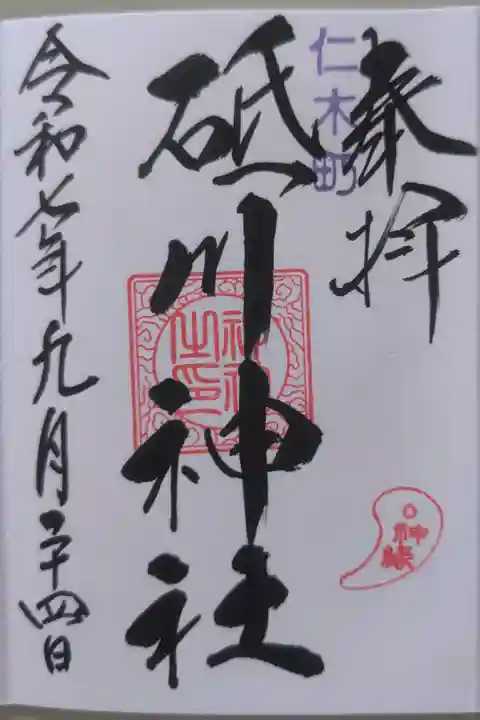 奉拝
仁木町
砥川神社
神社之印
神縁
令和七年九月二十四日